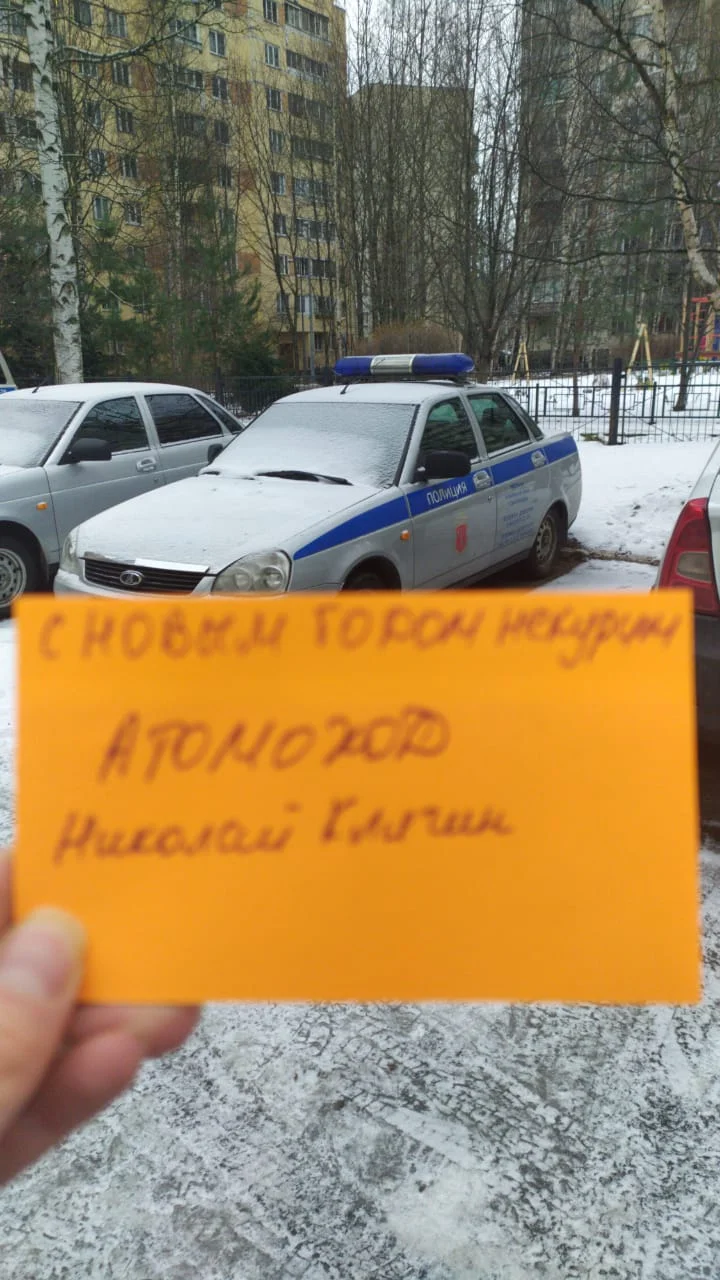 ПОЛИЦИЯ
С НОВЫМ ГОДОМ некурим
АТОМОХОД
Николай Клягин